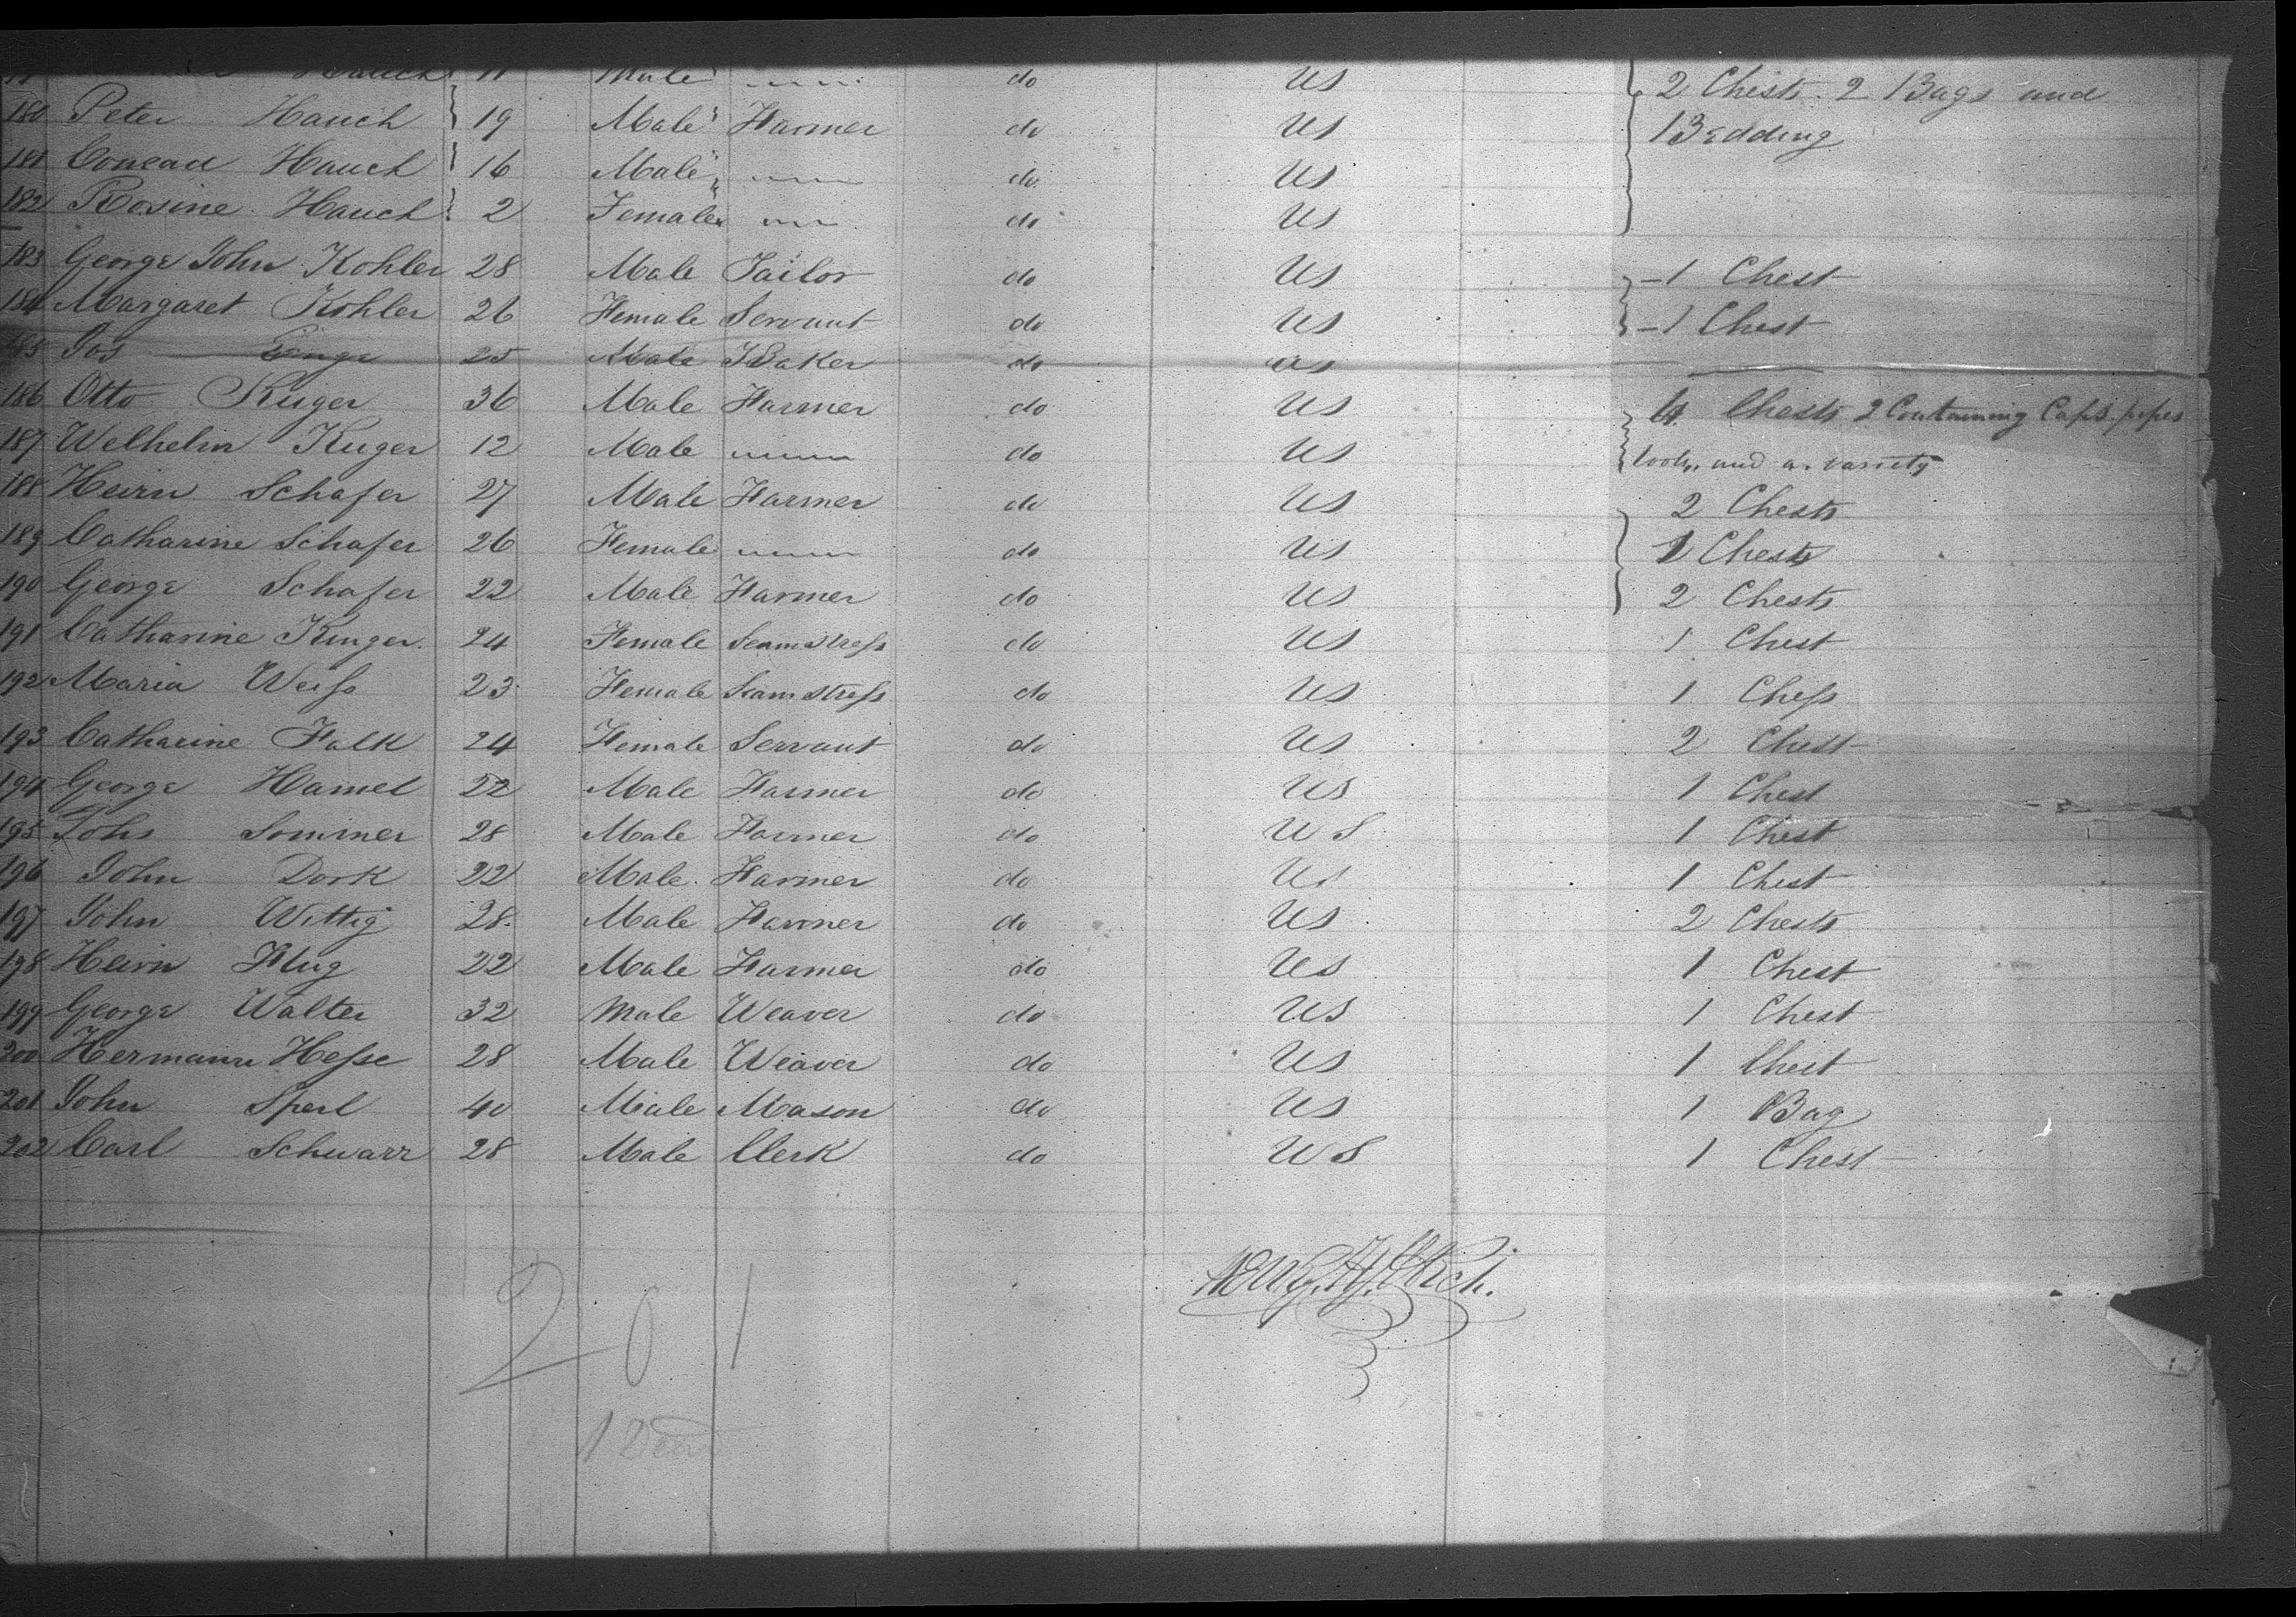 Hauch 11 Male do US 2 Chests 2 Bags and
180 Peter Hauch 19 Male Farmer do US Bedding
181 Conrad Hauch 16 Male do US
182 Rosine Hauch 2 Female do US
183 George John Kohler 28 Male Tailor do US 1 Chest
184 Margaret Kohler 26 Female Servant do US 1 Chest
185 Jos 25 Male Baker do US
186 Otto Kuger 36 Male Farmer do US 4 Chests 2 Containing Caps. pipes
187 Welhelm Kuger 12 Male do US tools, and a variety
188 Heirn Schafer 27 Male Farmer do US 2 Chests
189 Catharine Schafer 26 Female do US 1 Chests
190 George Schafer 22 Male Farmer do US 2 Chests
191 Catharine Kruger 24 Female Seamstress do US 1 Chest
192 Maria Weiss 23 Female Seamstress do US 1 Chess
193 Catharine Falk 24 Female Servant do US 2 Chest
194 George Hamel 22 Male Farmer do US 1 Chest
195 Johs Sommer 28 Male Farmer do US 1 Chest
196 John Dork 22 Male Farmer do US 1 Chest
197 John Wittig 28 Male Farmer do US 2 Chests
198 Heirn Flug 22 Male Farmer do US 1 Chest
199 George Walter 32 Male Weaver do US 1 Chest
200 Hermann Hesse 28 Male Weaver do US 1 Chest
201 John Sperl 40 Male Mason do US 1 Bag
202 Carl Schwarz 28 Male Clerk do US 1 Chest
201
1